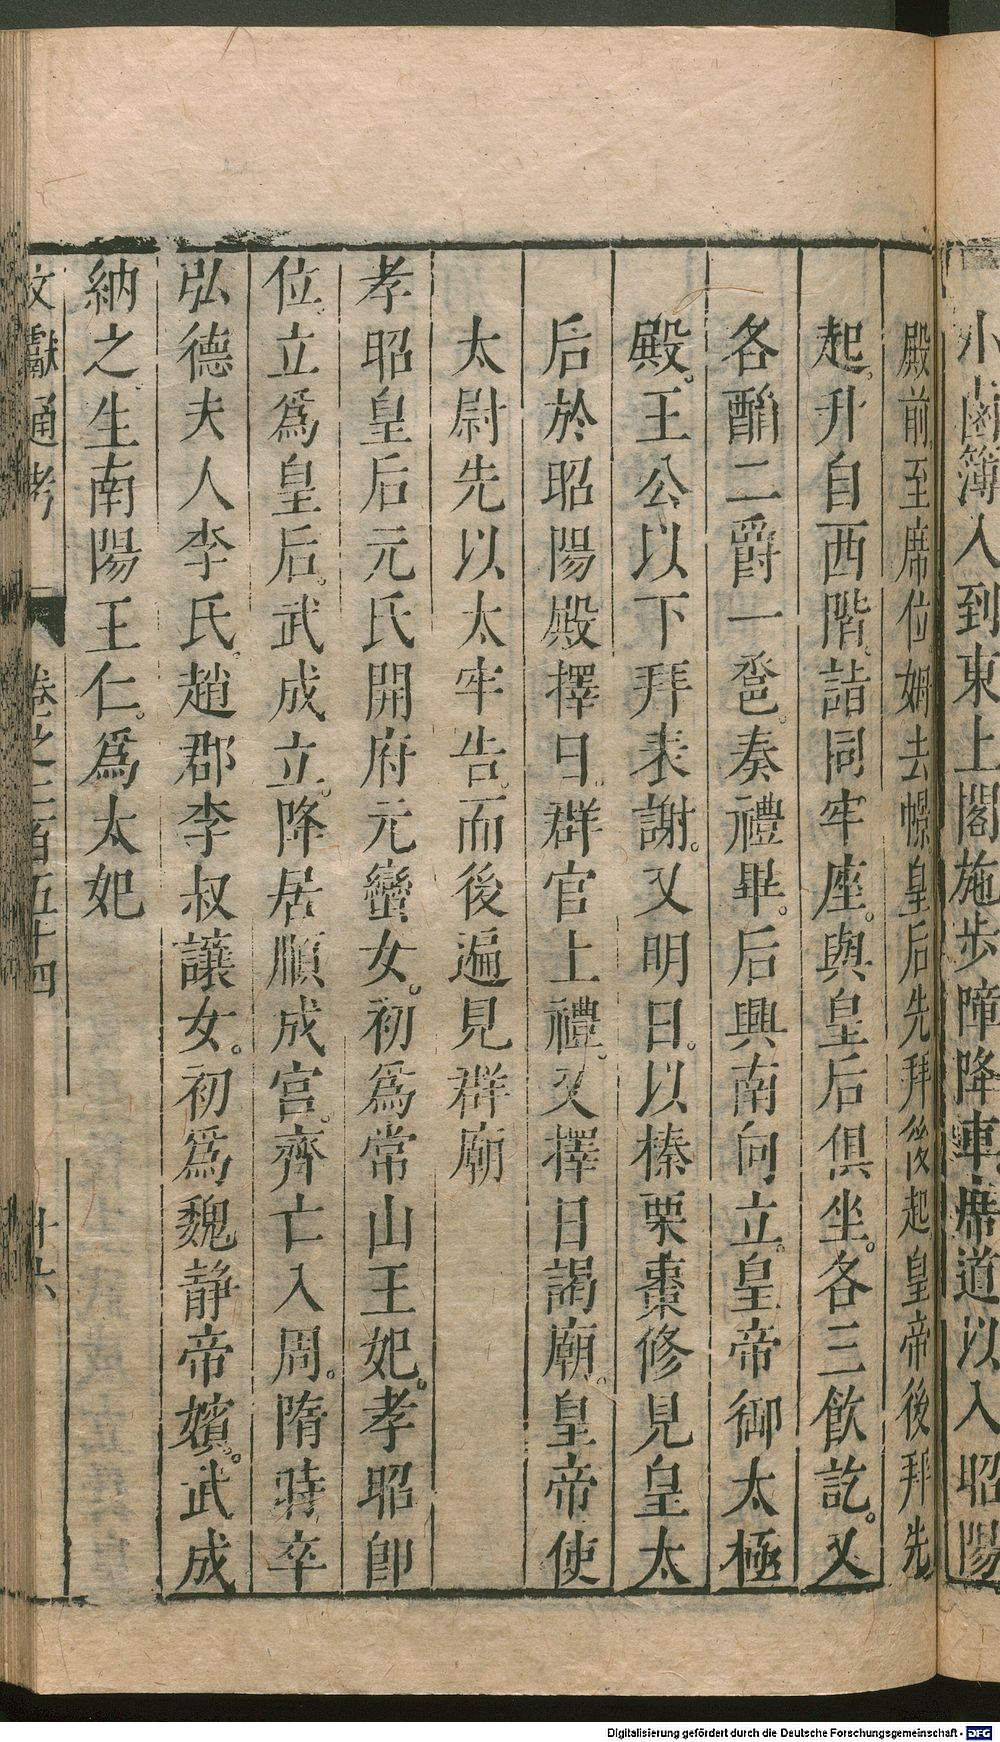 小鹵簿入到東上閣施步障降車席道以入昭陽
殿前至席位姆去幜皇后先拜後起皇帝後拜先
起升自西階詣同牢座與皇后俱坐各三飲訖又
各酳二爵一卺奏禮畢后興南向立皇帝御太極
殿王公以下拜表謝又明日以榛栗棗修見皇太
后於昭陽殿擇日群官上禮又擇日謁廟皇帝使
太尉先以太牢告而後遍見群廟
孝昭皇后元氏開府元蠻女初為常山王妃孝昭即
位立為皇后武成立降居順成宮齊亡入周隋時卒
弘德夫人李氏趙郡李叔讓女初為魏靜帝嬪武成
納之生南陽王仁為太妃
文獻通考 卷之二百五十四 十六
Digitalisierung gefördert durch die Deutsche Forschungsgemeinschaft - DFG